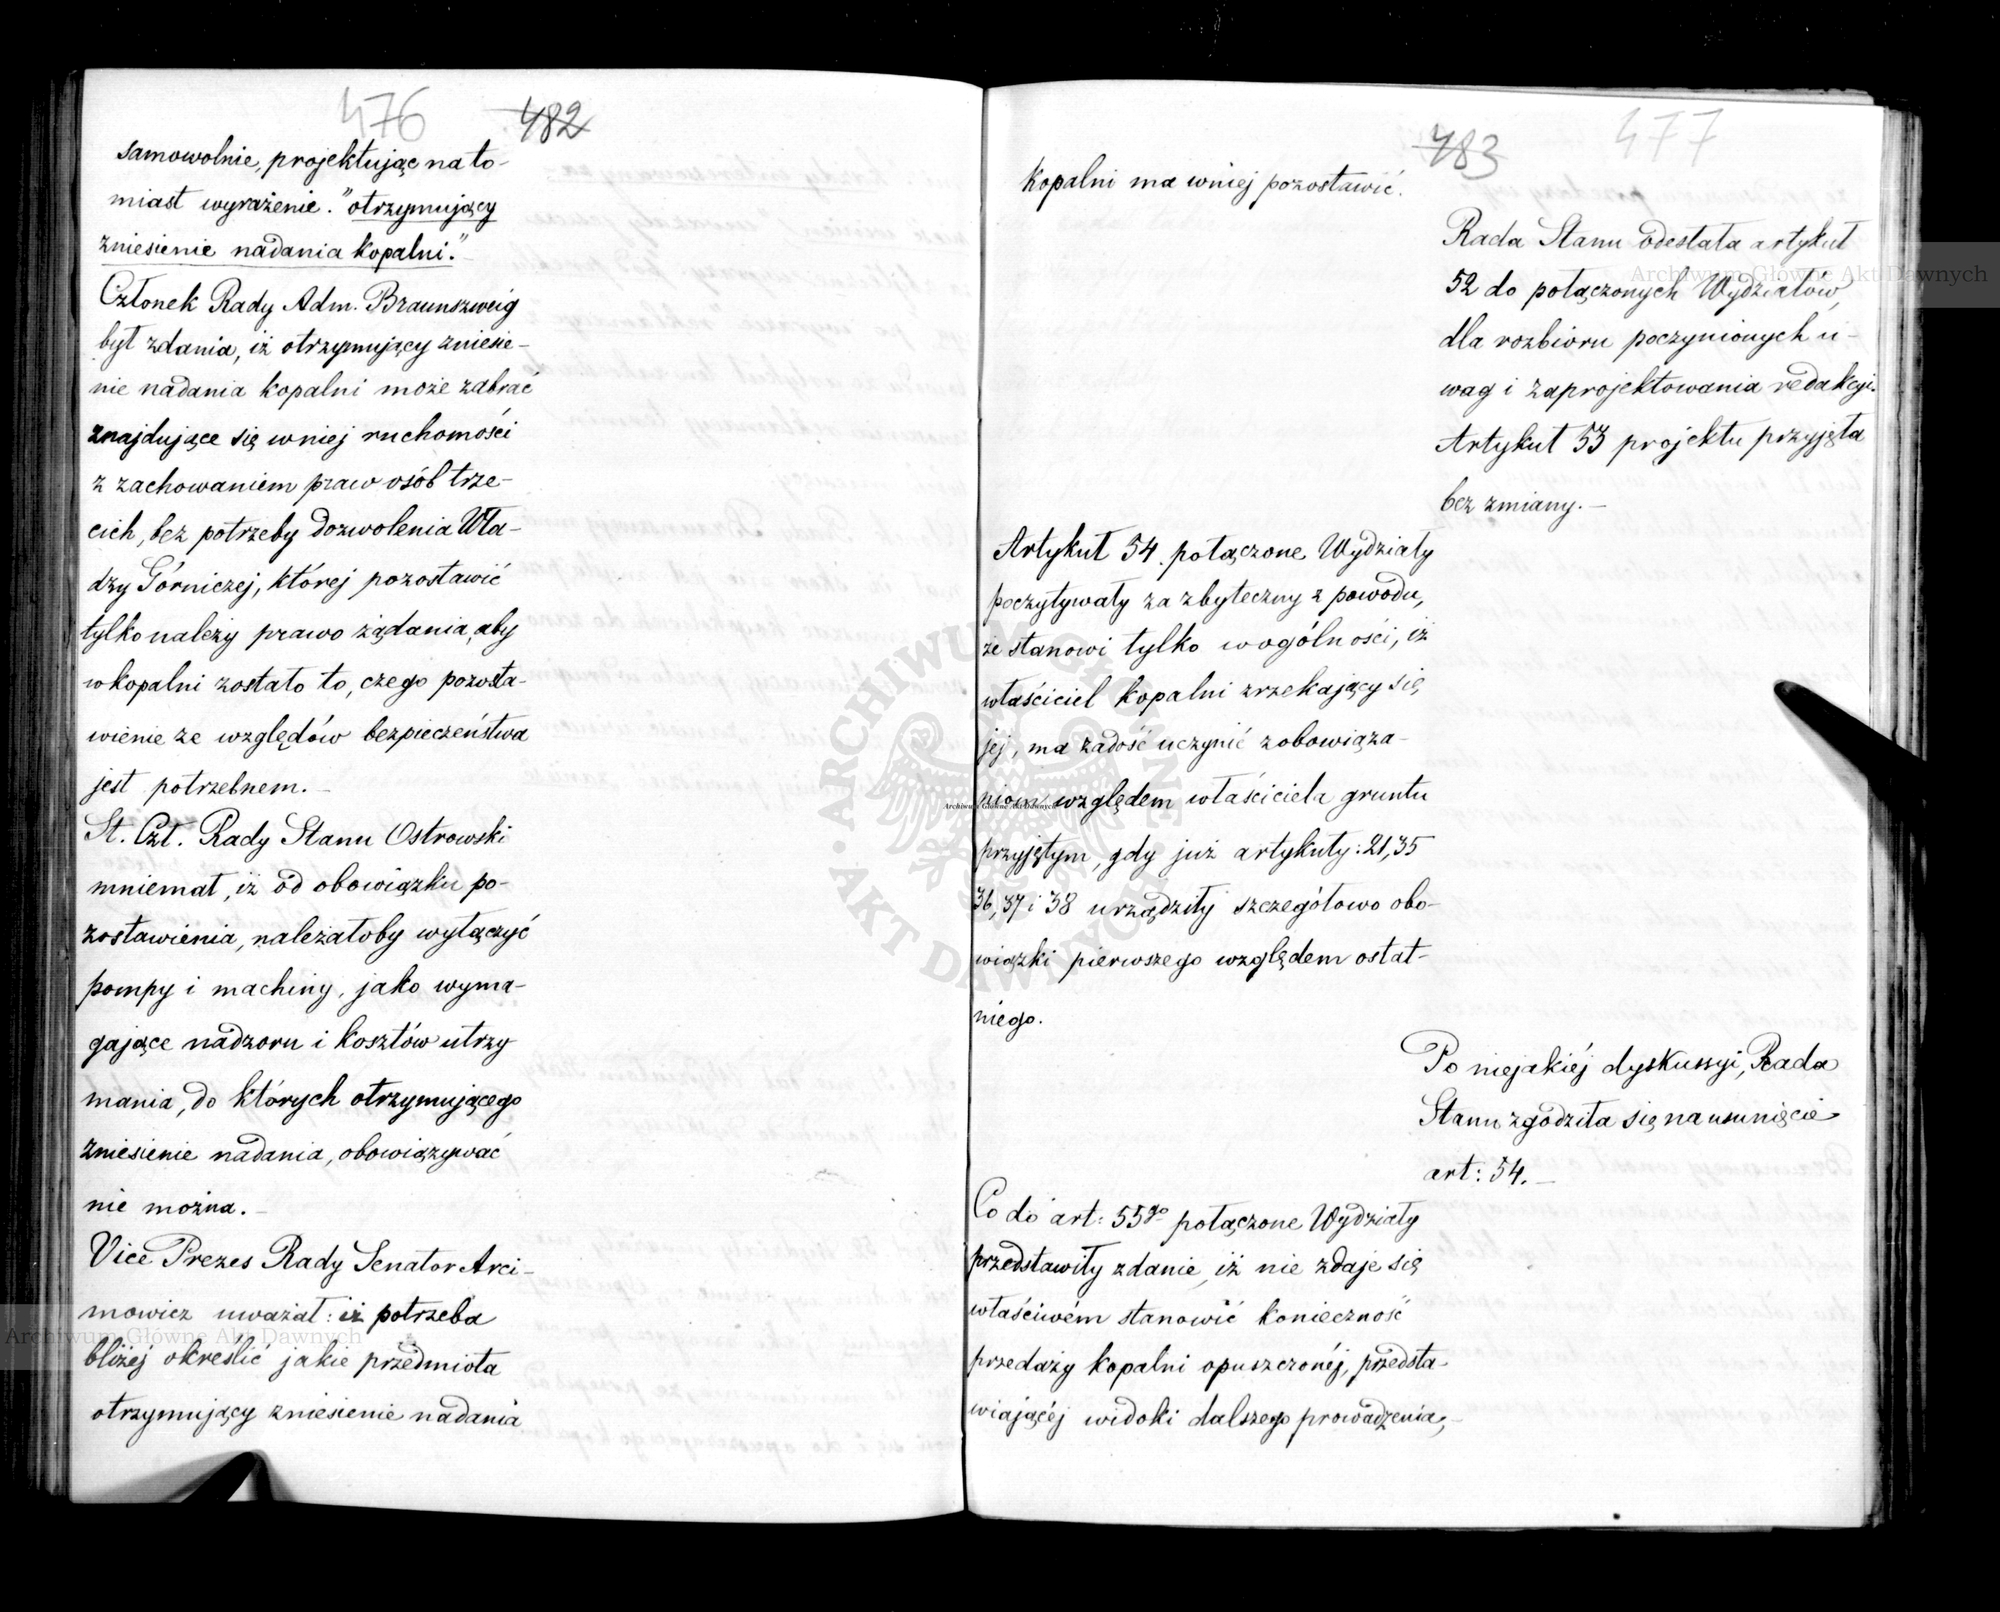 476 482
samowolnie, projektując nato-
miast wyrażenie. "otrzymujący
zniesienie nadania kopalni."
Członek Rady Adm. Braunszweig
był zdania, iż otrzymujący zniesie-
nie nadania kopalni może zabrać
znajdujące się w niej ruchomości
z zachowaniem praw osób trze-
cich, bez potrzeby dozwolenia Wła-
dzy Górniczej, której pozostawić
tylko należy prawo żądania, aby
w kopalni zostało to, czego pozosta-
wienie ze względów bezpieczeństwa
jest potrzebnem. -
St. Czł. Rady Stanu Ostrowski
mniemał, iż od obowiązku po-
zostawienia, należałoby wyłączyć
pompy i machiny, jako wyma-
gające nadzoru i kosztów utrzy
mania, do których otrzymującego
zniesienie nadania, obowiązywać
nie można. -
Vice Prezes Rady Senator Arci-
mowicz uważał: iż potrzeba
bliżej określić jakie przedmiota
otrzymujący zniesienie nadania
483 477
kopalni ma w niej pozostawić.
Rada Stanu odesłała artykuł
52 do połączonych Wydziałów,
dla rozbioru poczynionych u-
wag i zaprojektowania redakcyi.
Artykuł 53 projektu przyjęła
bez zmiany. -
Artykuł 54. połączone Wydziały
poczytywały za zbyteczny z powodu,
że stanowi tylko w ogólności, iż
właściciel kopalni zrzekający się
jej, ma zadość uczynić zobowiąza-
niom względem właściciela gruntu
przyjętym, gdy już artykuły: 21, 35
36, 37 i 38 urządziły szczegółowo obo-
wiązki pierwszego względem ostat-
niego.
Po niejakiéj dyskussyi, Rada
Stanu zgodziła się na usunięcie
art: 54. -
Co do art: 55go połączone Wydziały
przedstawiły zdanie, iż nie zdaje się
właściwém stanowić konieczność
przedaży kopalni opuszczonéj, przedsta-
wiającéj widoki dalszego prowadzenia, -
Archiwum Główne Akt Dawnych
Archiwum Główne Akt Dawnych
Archiwum Główne Akt Dawnych
ARCHIWUM GŁÓWNE · AKT DAWNYCH ·